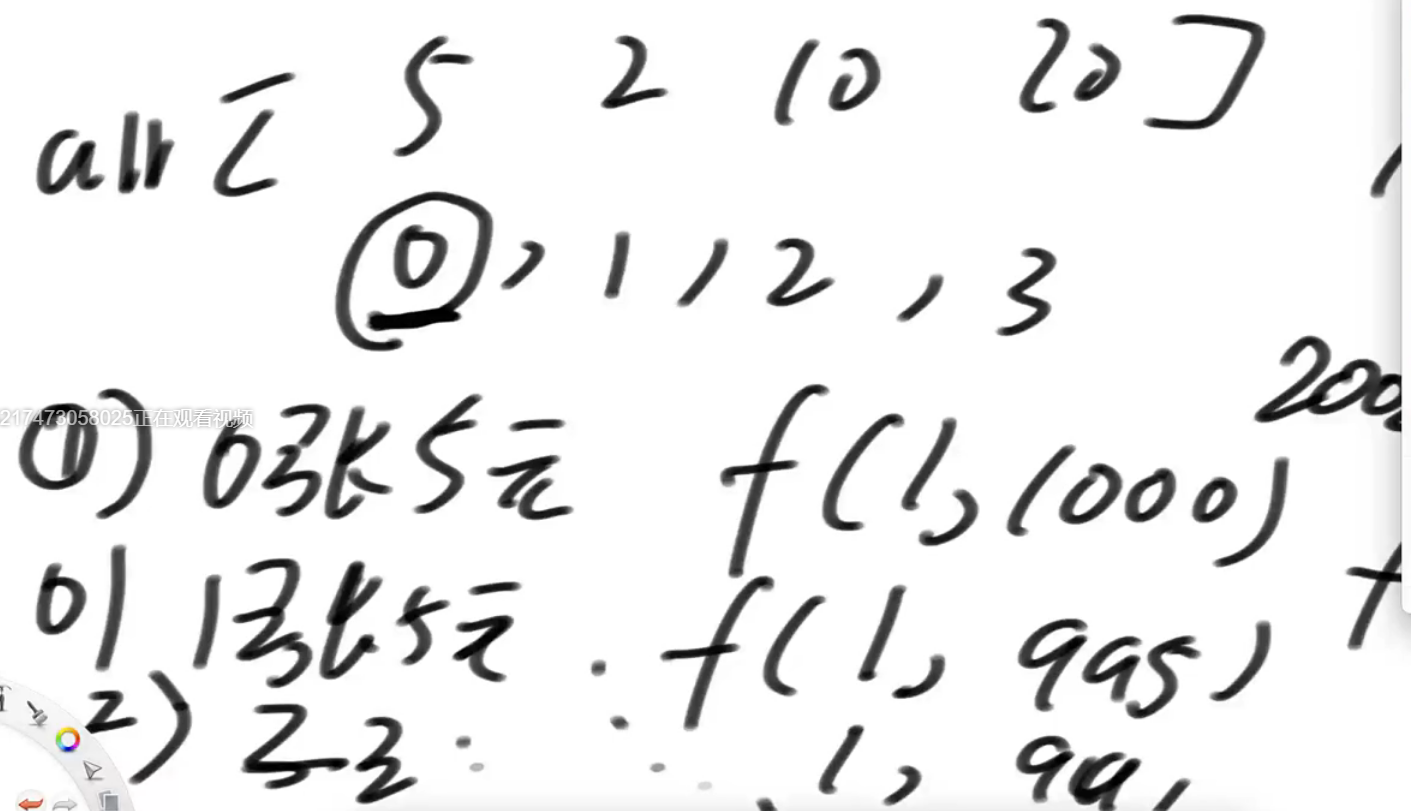 arr [ 5 2 10 20 ]
0 , 1 , 2 , 3
200
217473058025正在观看视频
1) 0张5元 f(1,1000)
1张5元 f(1, 995)
2)
1, 99